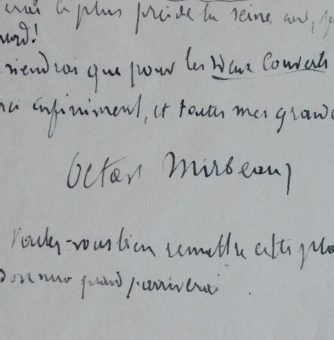 le plus près de la scène,
nord!
viendrai que pour les deux Couverts
infiniment, et toutes mes grand
Octave Mirbeau
Voulez-vous bien remettre cette
quand j'arriverai